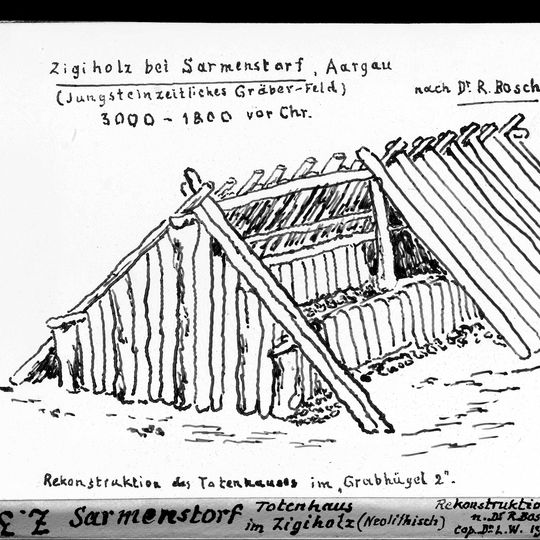 Zigiholz bei Sarmenstorf, Aargau
(Jungsteinzeitliches Gräber-Feld)
nach Dr. R. Bosch
3000 - 1800 vor Chr.
Rekonstruktion des Totenhauses im „Grabhügel 2".
Z.3 Sarmenstorf
Totenhaus
im Zigiholz (Neolithisch)
Rekonstruktio
n. Dr. R. Bos
cop. Dr. L. W. 19